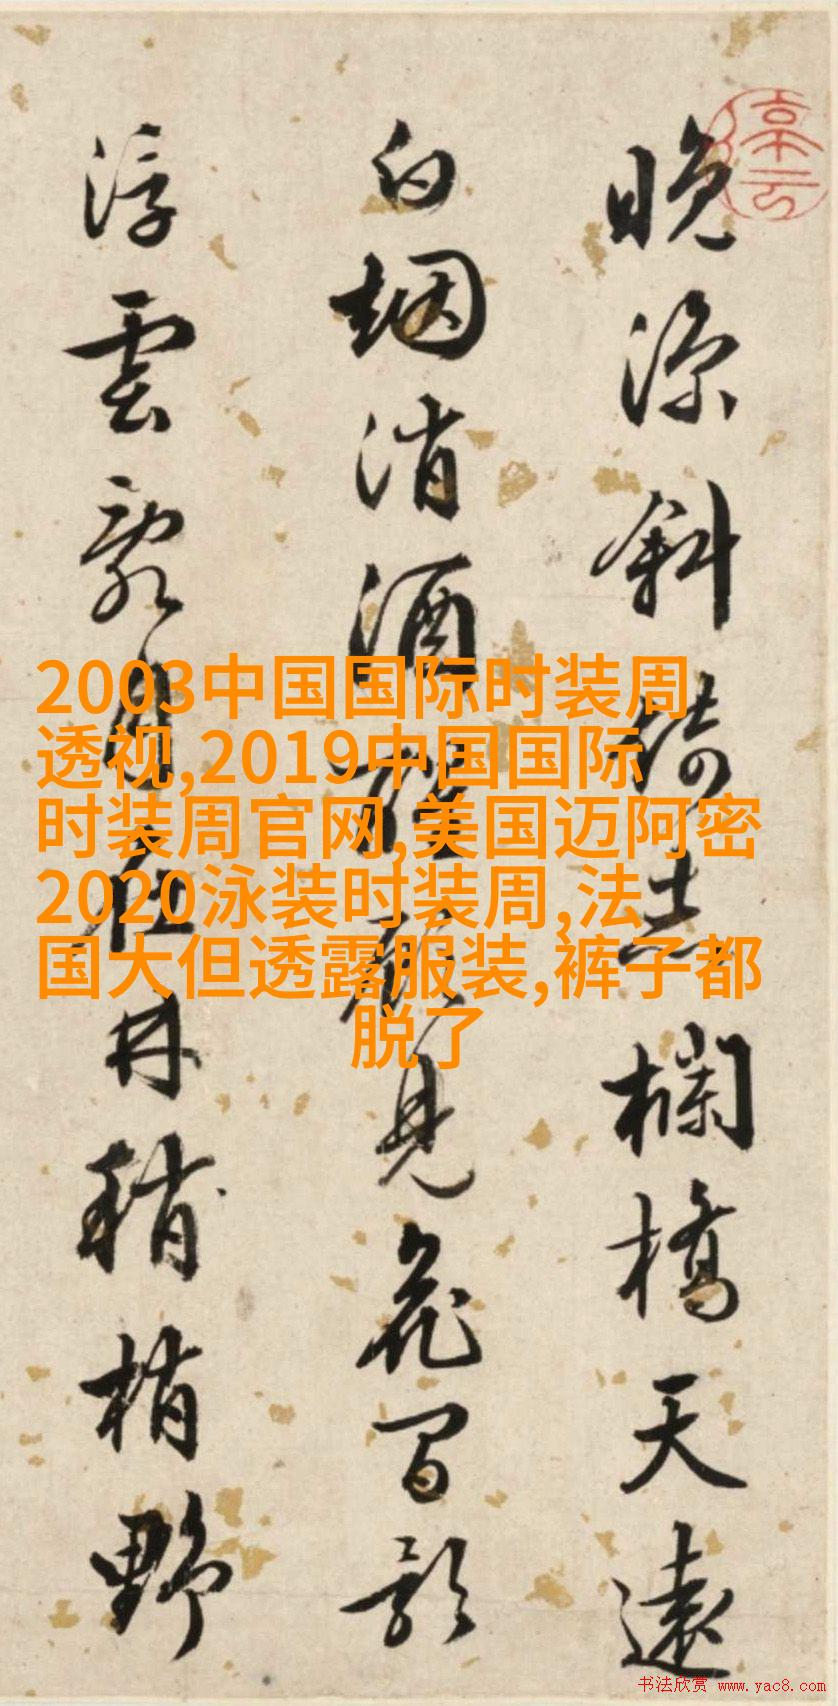 停雲
晚涼斜倚赤欄橋天遠
白烟消酒醒顧見花間影
浮雲露月在林稍梢野
2003中国国际时装周
透视,2019中国国际
时装周官网,美国迈阿密
2020泳装时装周,法
国大但透露服装,裤子都
脱了
书法欣赏 www.yac8.com